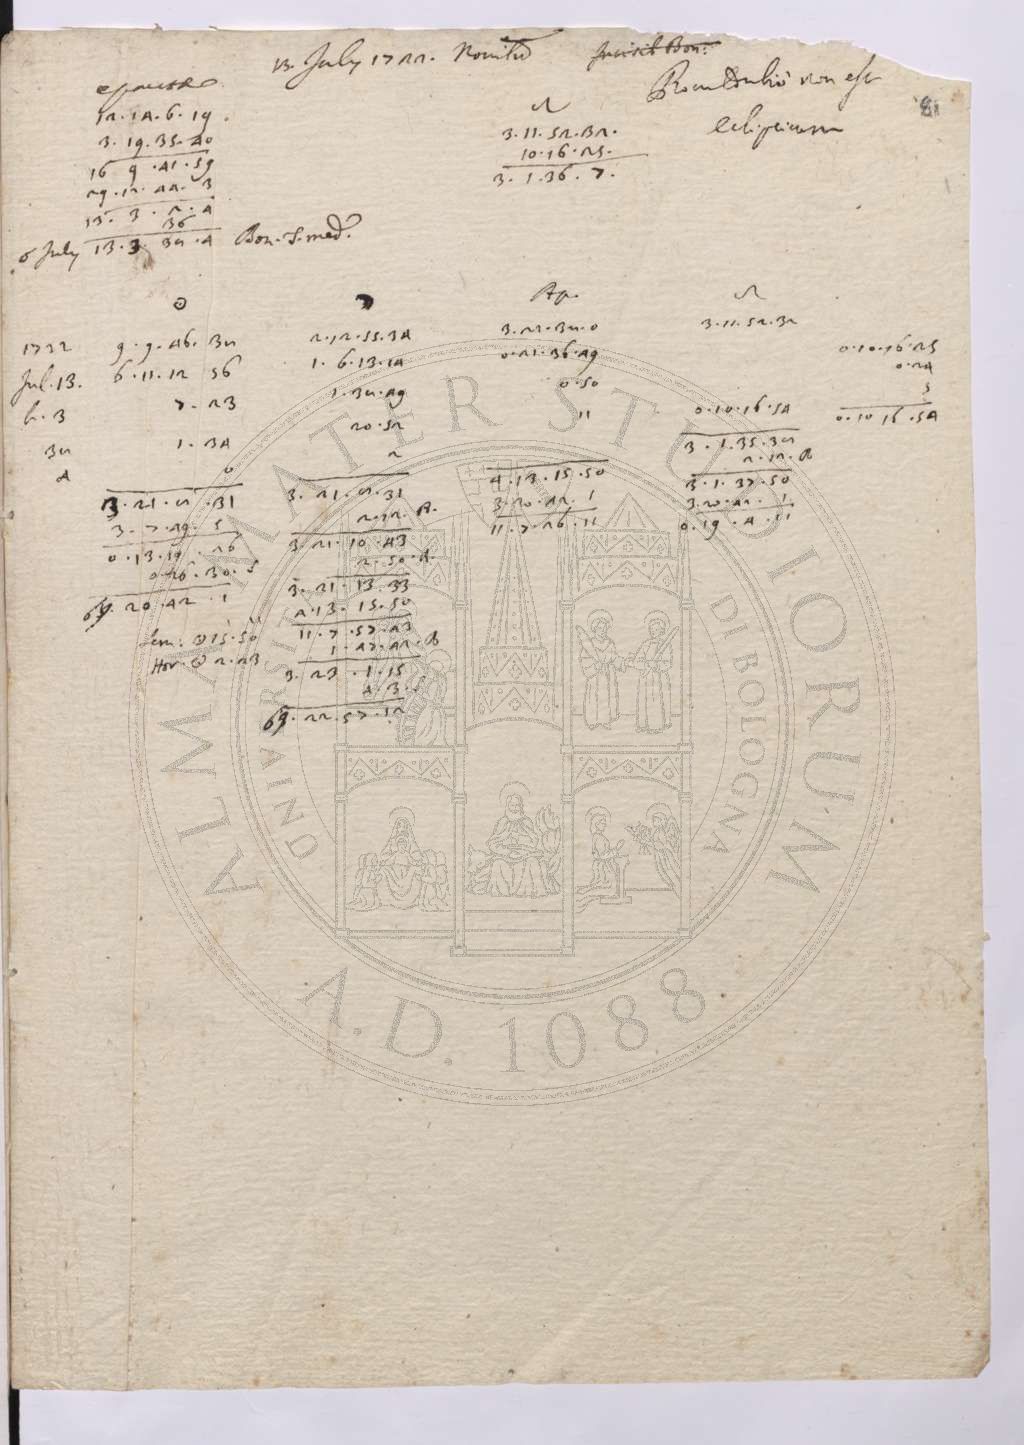 13. July 1722. Novilu Fuisset Bon.
Novilunium non est
eclipticum
epactae
12.14.6.19
3.19.35.40
16 9.41.59
29.12.44.3
13.3.2.4
36
☌ July 13.3.38.4 Bon. T. med.
☊
3.11.52.32.
10.16.25.
3.1.36.7.
☉
1722 9.9.46.38
Jul. 13. 6.11.12 56
h. 3 7.23
38 1.34
4 0
3.21.8.31
3.7.49.5
0.13.19.26
0.26.30.S
♋. 20.42.1
Sem: ☉ 15.50
Hor. ☉ 2.23
☽
2.12.55.34
1.6.13.14
1.38.49
20.52
2
3.21.8.31
2.12.A.
3.21.10.43
2.50.A.
3.21.13.33
4.13.15.50
11.7.57.43
1.47.42.A
3.23.1.15
4.3.S
♋. 22.57.12
Ap.
3.21.38.0
0.21.36.49
0.50
11
4.13.15.50
3.20.42.1
11.7.26.11
☊
3.11.52.32
0.10.16.54
3.1.35.38
2.12.A
3.1.37.50
3.20.42.1
0.19.4.11
0.10.16.25
0.24
5
0.10 16.54
ALMA MATER STUDIORUM
UNIVERSITÀ DI BOLOGNA
A.D. 1088